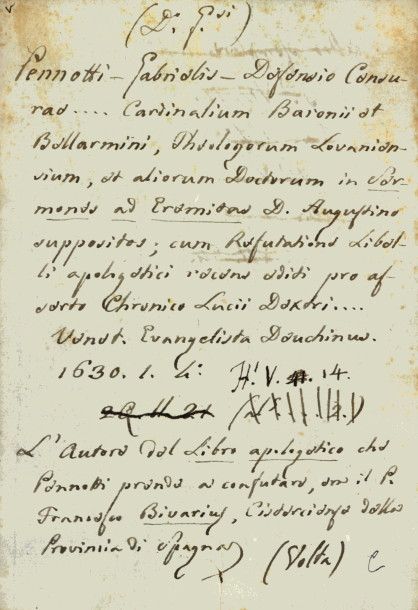 (D. Gesi)
Pennotti - Gabrielis - Defensio Censu-
rae .... Cardinalium Baronii et
Bellarmini, Theologorum Lovanien-
sium, et aliorum Doctorum in Ser-
mones ad Eremitas D. Augustino
suppositos; cum Refutatione Libel-
li apologetici recens editi pro as-
serto Chronico Lucii Dexteri....
Venet. Evangelista Deuchinus.
1630. 1. 4: H. V. 14.
L'Autore del Libro apologetico che
Pennotti prende a confutare, era il P.
Francesco Bivarius, Cisterciense della
Provincia di Spagna
(Volta)